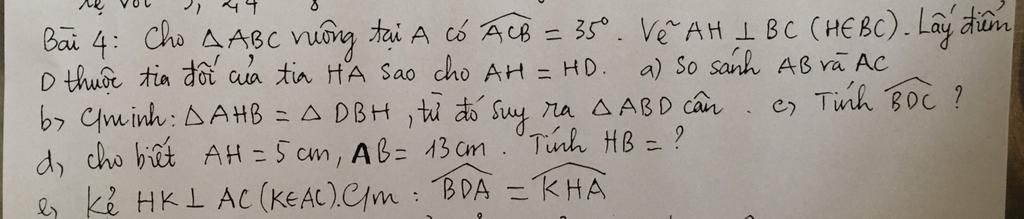 Bài 4: Cho △ABC vuông tại A có ACB = 35°. Vẽ AH ⊥ BC (H∈BC). Lấy điểm
D thuộc tia đối của tia HA sao cho AH = HD. a) So sánh AB và AC
b> C/minh: △AHB = △DBH, từ đó suy ra △ABD cân. c> Tính BDC?
d, cho biết AH = 5 cm, AB = 13 cm. Tính HB = ?
e, kẻ HK ⊥ AC (K∈AC). C/m: BDA = KHA